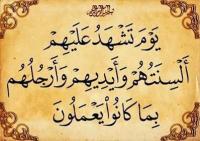 يَوْمَ تَشْهَدُ عَلَيْهِمْ
أَلْسِنَتُهُمْ وَأَيْدِيهِمْ وَأَرْجُلُهُمْ
بِمَا كَانُوا يَعْمَلُونَ